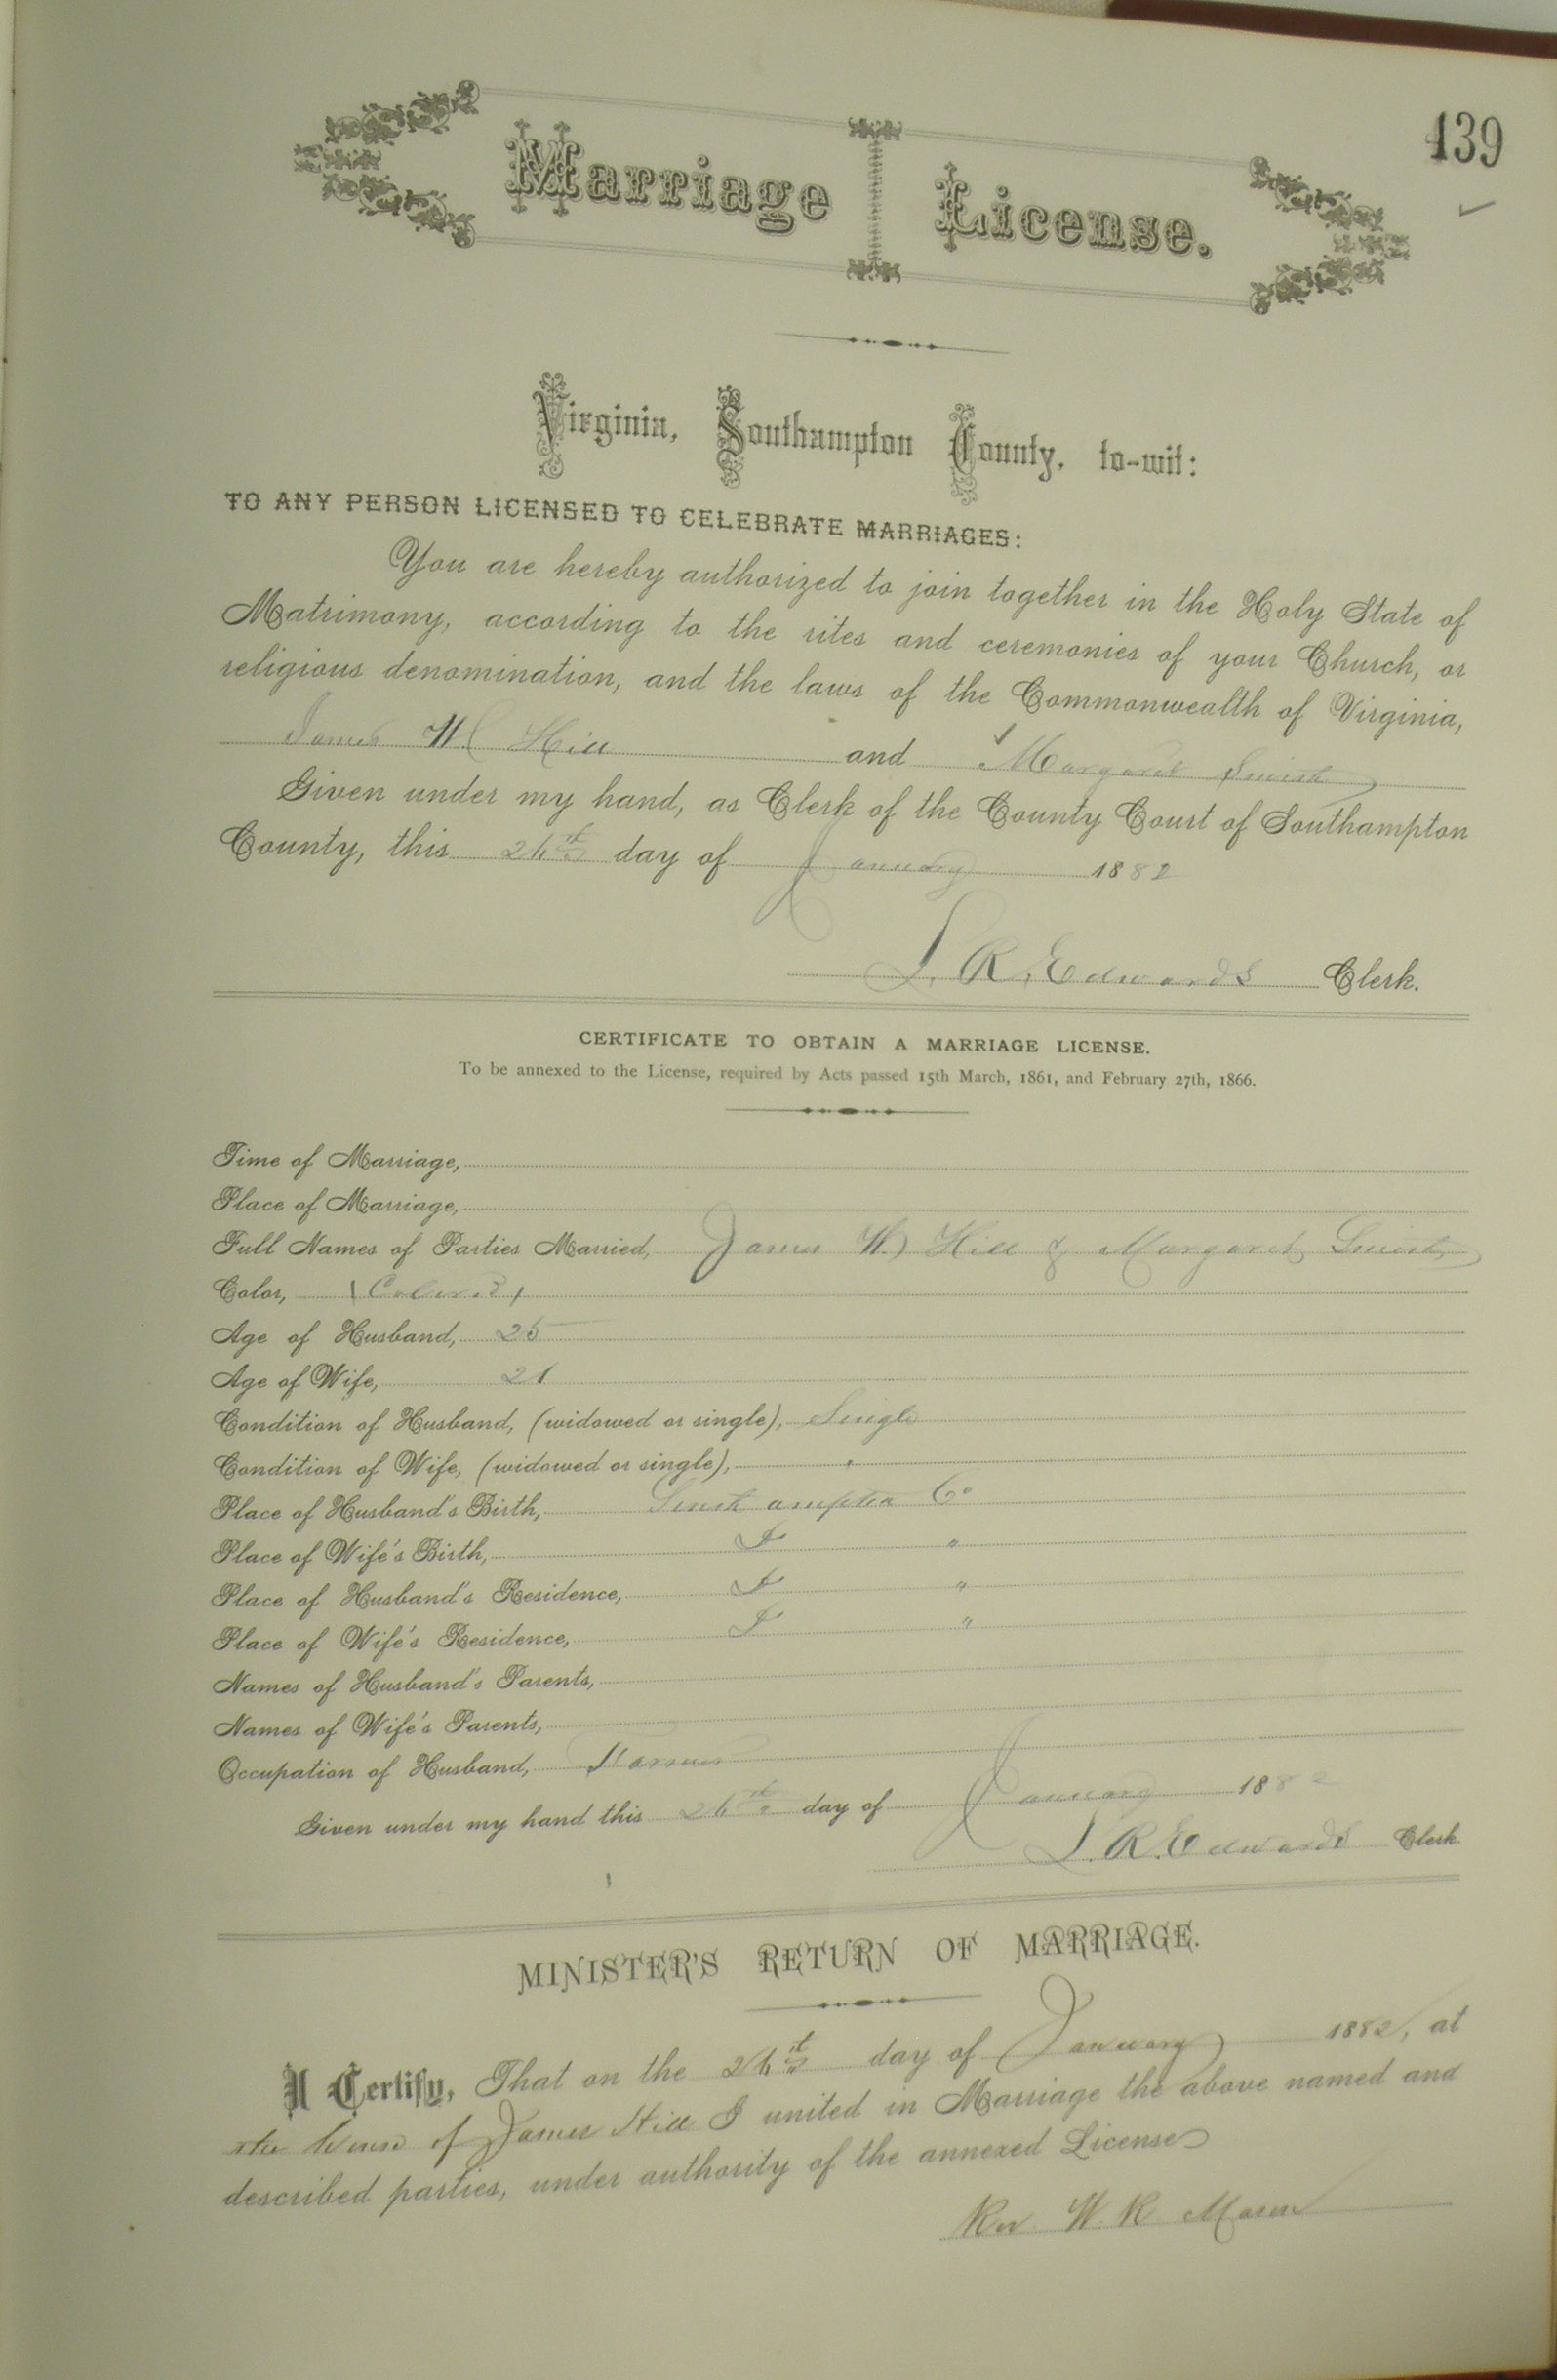 139
Marriage License.
Virginia, Southampton County, to-wit:
TO ANY PERSON LICENSED TO CELEBRATE MARRIAGES:
You are hereby authorized to join together in the Holy State of
Matrimony, according to the rites and ceremonies of your Church, or
religious denomination, and the laws of the Commonwealth of Virginia,
James W Hill and Margaret
Given under my hand, as Clerk of the County Court of Southampton
County, this 26th day of January 1882
L. R. Edwards Clerk.
CERTIFICATE TO OBTAIN A MARRIAGE LICENSE.
To be annexed to the License, required by Acts passed 15th March, 1861, and February 27th, 1866.
Time of Marriage,
Place of Marriage,
Full Names of Parties Married, James W. Hill & Margaret
Color, (Colored)
Age of Husband, 25
Age of Wife, 21
Condition of Husband, (widowed or single), Single
Condition of Wife, (widowed or single), "
Place of Husband's Birth, Southampton Co
Place of Wife's Birth, "
Place of Husband's Residence, "
Place of Wife's Residence, "
Names of Husband's Parents,
Names of Wife's Parents,
Occupation of Husband, Farmer
Given under my hand this 26th day of January 1882
L. R. Edwards Clerk.
MINISTER'S RETURN OF MARRIAGE.
I Certify, That on the 26th day of January 1882, at
the house of James Hill I united in Marriage the above named and
described parties, under authority of the annexed License
Rev W. R